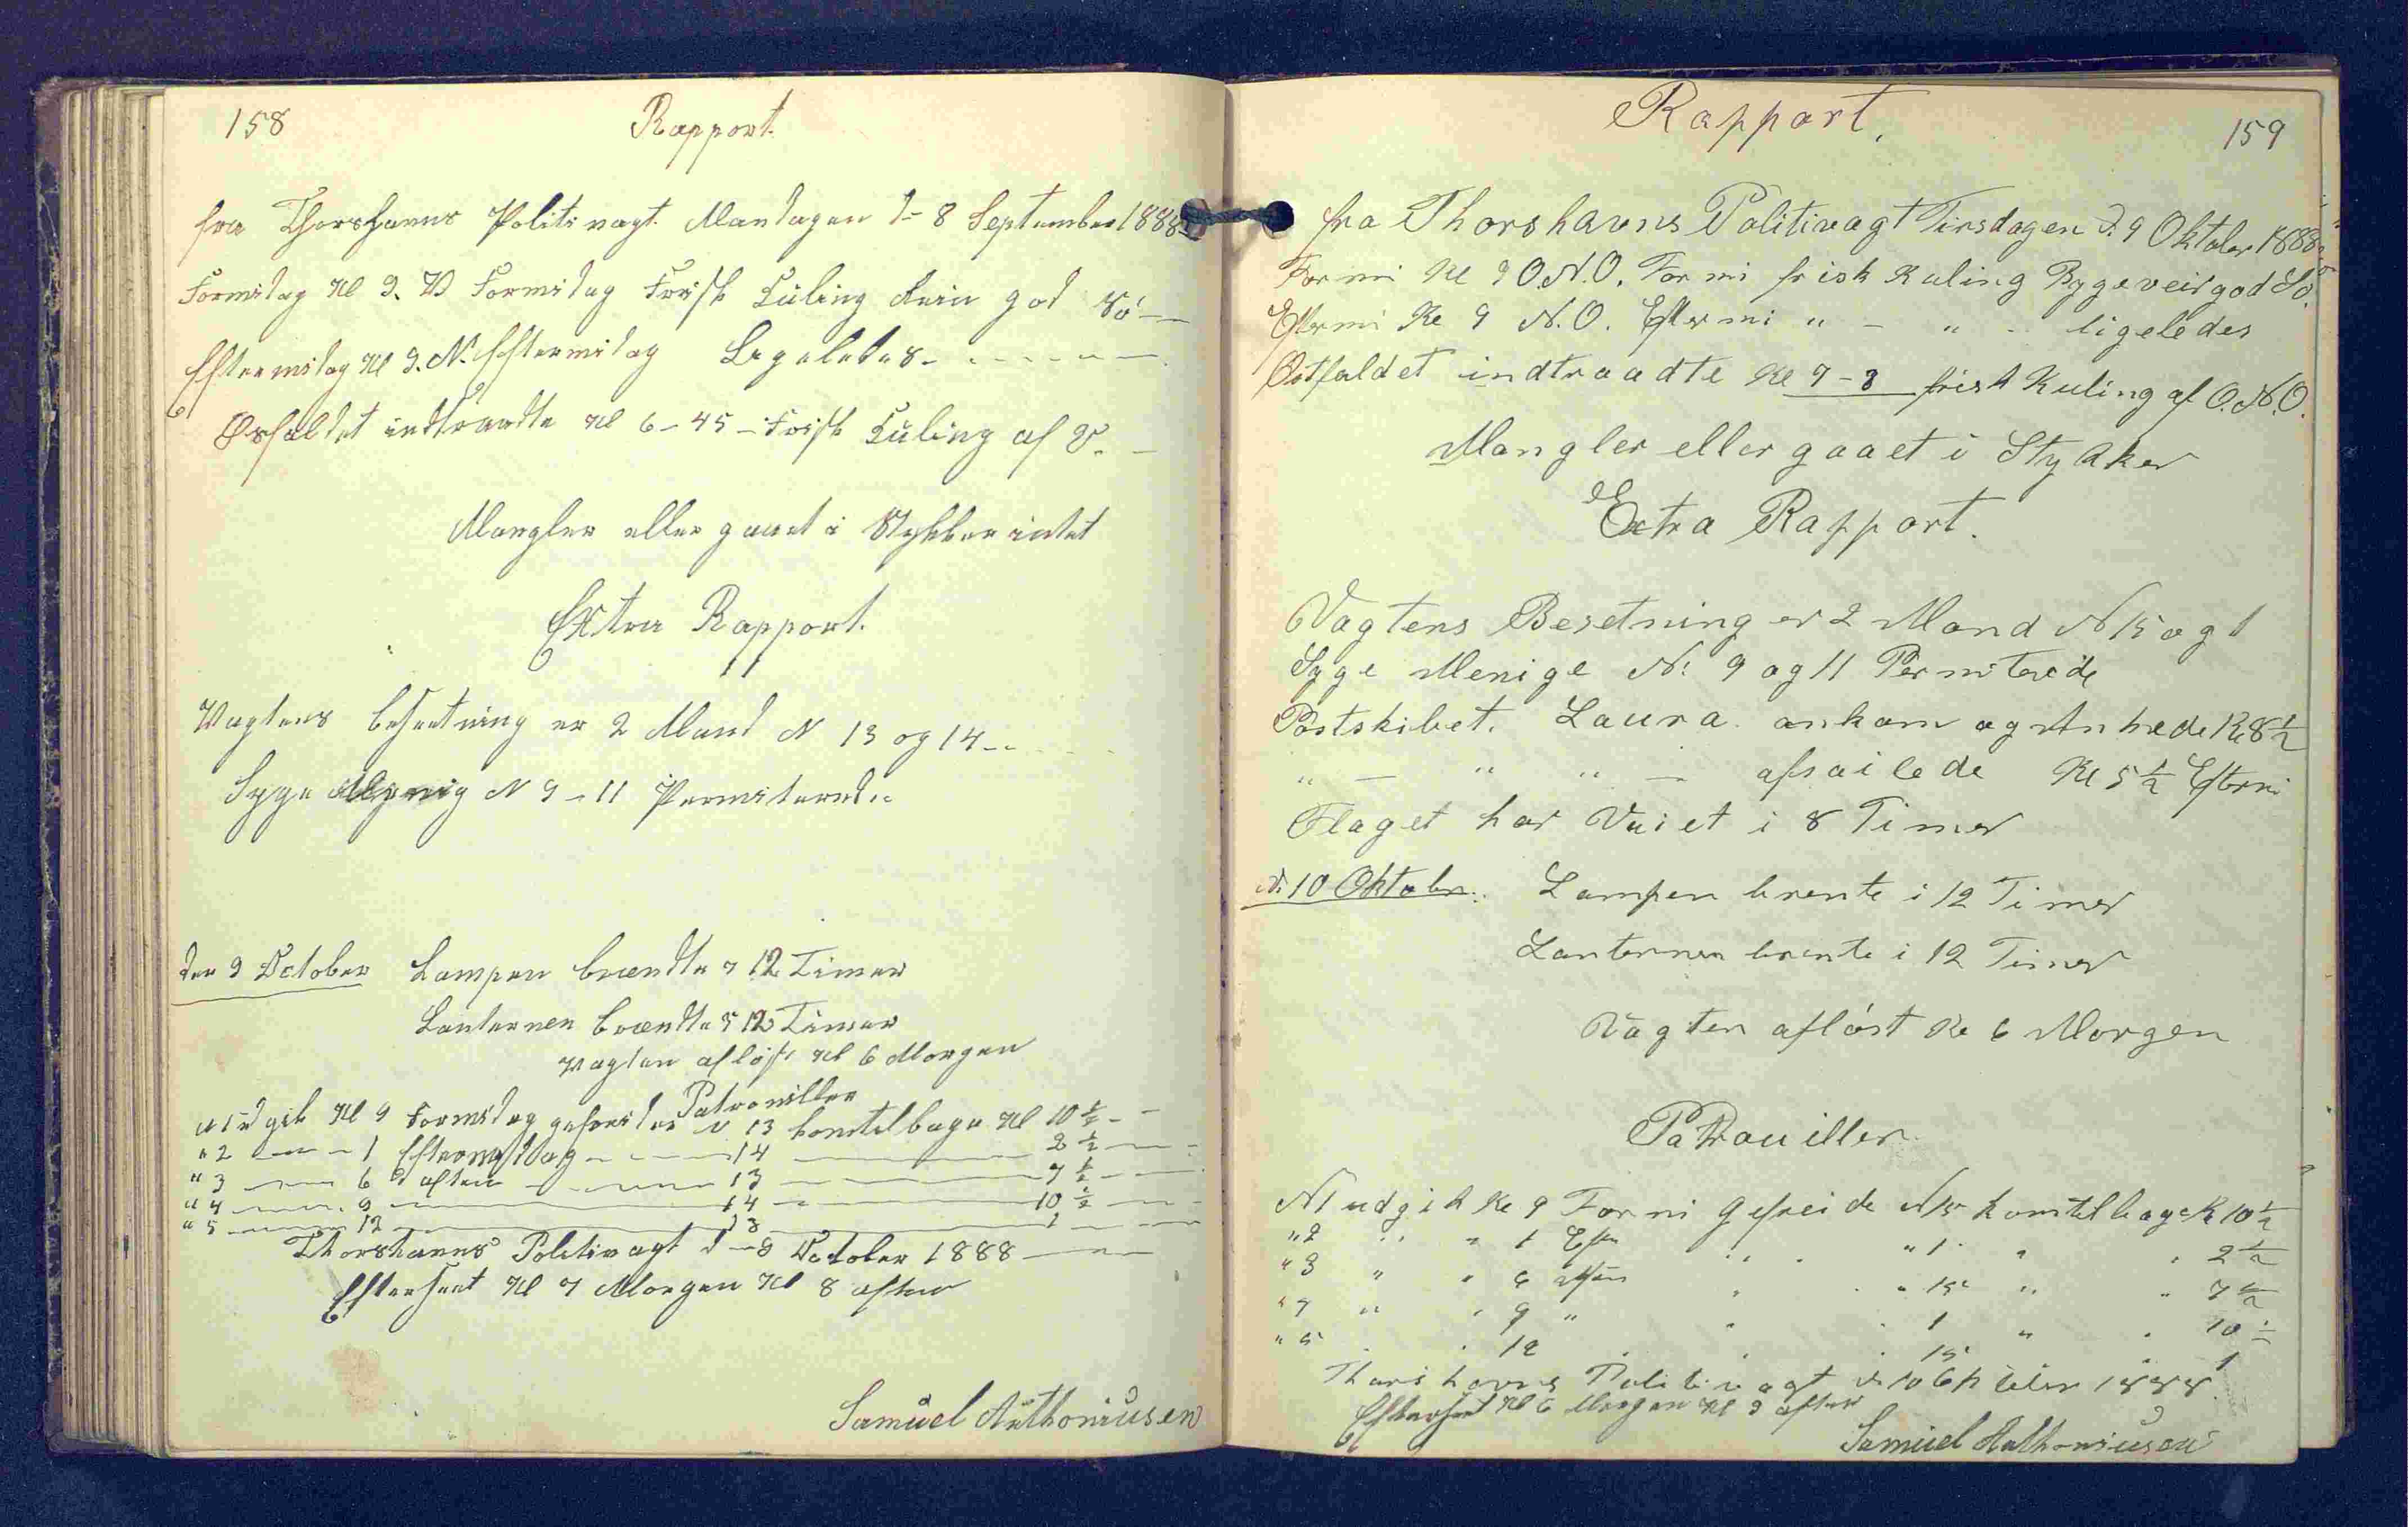 158
Rapport.
fra Thorshavns Politivagt. Mandagen d- 8 September 1888
Formidag Kl 9. V Formidag Frisk Kuling Rein god Sö
Eftermidag Kl 9. N. Eftermidag Ligeledes
Ostfaldet indtraadte Kl 6-45 - Frisk Kuling af V.
Mangler eller gaaet i Stykker intet
Extra Rapport.
Vagtens besætning er 2 Mand N 13 og 14
Syge Menig N 9 - 11 Permiterede
den 9 October Lampen brændte i 12 Timer
Lanternen brændte i 12 Timer
Vagten aflöst Kl 6 Morgen
Patrouiller
N 1 udgik Kl 9 Formidag gefreider N 13 komtilbage Kl 10 1/2
" 2 — 1 Eftermidag — 14 — 2 1/2
" 3 — 6 aften — 13 — 7 1/2
" 4 — 9 — 14 — 10 1/2
" 5 — 12 — 13 — 1
Thorshavns Politivagt d - 9 October 1888
Efterseet Kl 7 Morgen Kl 8 aften
Samuel Anthoniusen
Rapport.
159
fra Thorshavns Politivagt Tirsdagen d. 9 Oktober 1888
Formi Kl 9 O.N.O. Formi frisk Kuling Bygeveir god Sö.
Eftermi Kl 9 N.O. Eftermi " - " - ligeledes
Ostfaldet indtraadte Kl 7-8 frisk Kuling af O.N.O.
Mangler eller gaaet i Stykker
Extra Rapport.
Vagtens Besetning er 2 Mand N 15 og 1
Syge Menige N: 9 og 11 Permiterede
Postskibet. Laura ankom og Ankrede Kl 8 1/2
" — " " — afsailede Kl 5 1/2 Eftermi
Flaget har Vaiet i 8 Timer
d. 10 Oktober. Lampen brente i 12 Timer
Lanternen brente i 12 Timer
Vagten aflöst Kl 6 Morgen
Patrouiller
N 1 udgik Kl 9 Formi Gefreide N 15 komtilbage Kl 10 1/2
" 2 " " 1 Efter " " 1 " " 2 1/2
" 3 " " 6 aften " " 15 " " 7 1/2
" 4 " " 9 " " " 1 " " 10 1/2
" 5 " 12 " " 15 " 1
Thorshavns Politivagt d 10 Oktober 1888.
Efterseet Kl 6 Morgen Kl 9 aften
Samuel Anthoniusen